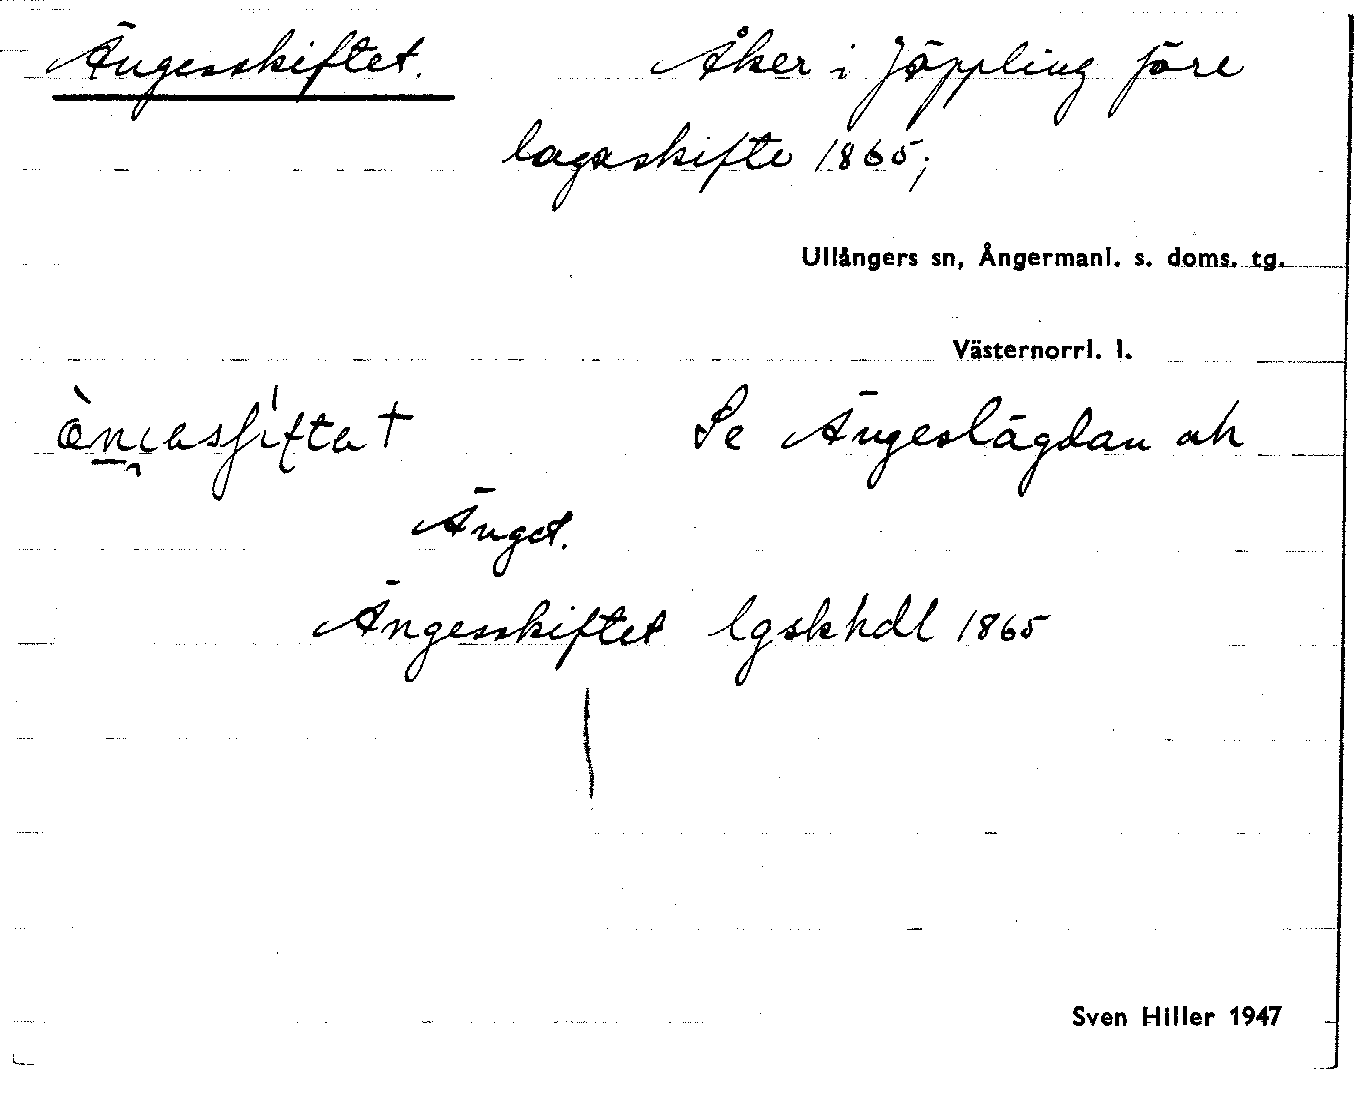 Ängesskiftet. Åker i Jäppling före
lagaskifte 1865;
Ullångers sn, Ångermanl. s. doms. tg.
Västernorrl. l.
Se Ängeslägdan och
Änget.
Ängesskiftet lgskhdl 1865
Sven Hiller 1947